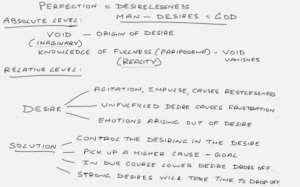 PERFECTION = DESIRELESSNESS
ABSOLUTE LEVEL: MAN - DESIRES = GOD
VOID - ORIGIN OF DESIRE
(IMAGINARY)
KNOWLEDGE OF FULLNESS (PARIPOORNA) - VOID
(REALITY) VANISHES.
RELATIVE LEVEL:
AGITATION, IMPULSE, CAUSES RESTLESSNESS
DESIRE UNFULFILLED DESIRE CAUSES FRUSTRATION
EMOTIONS ARISING OUT OF DESIRE
CONTROL THE DESIRING IN THE DESIRE
SOLUTION PICK UP A HIGHER CAUSE - GOAL
IN DUE COURSE LOWER DESIRE DROPS OFF.
STRONG DESIRES WILL TAKE TIME TO DROP OFF